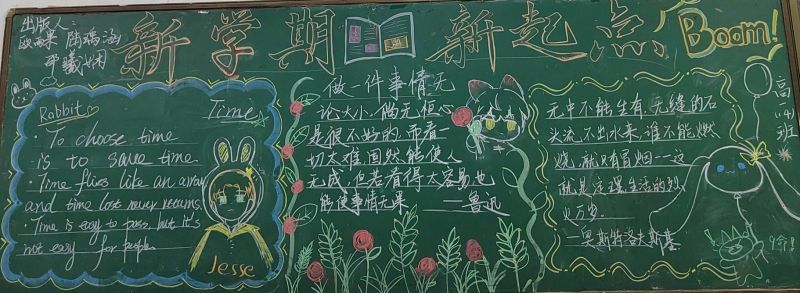 出版人:
新学期 新起点
Boom!
高一(4)班
Rabbit Time
· To choose time
is to save time.
· Time flies like an array
and time lost never returns.
· Time is easy to pass, but it's
not easy for people.
Jesse
做一件事情,无
论大小,倘无恒心,
是很不好的,而看一
切太难,固然能使人
无成,但若看得太容易,也
能使事情无果
——鲁迅
无中不能生有,无缝的石
头流不出水来。谁不能燃
烧,就只有冒烟——这
就是定理。生活的烈
火万岁。
——奥斯特洛夫斯基